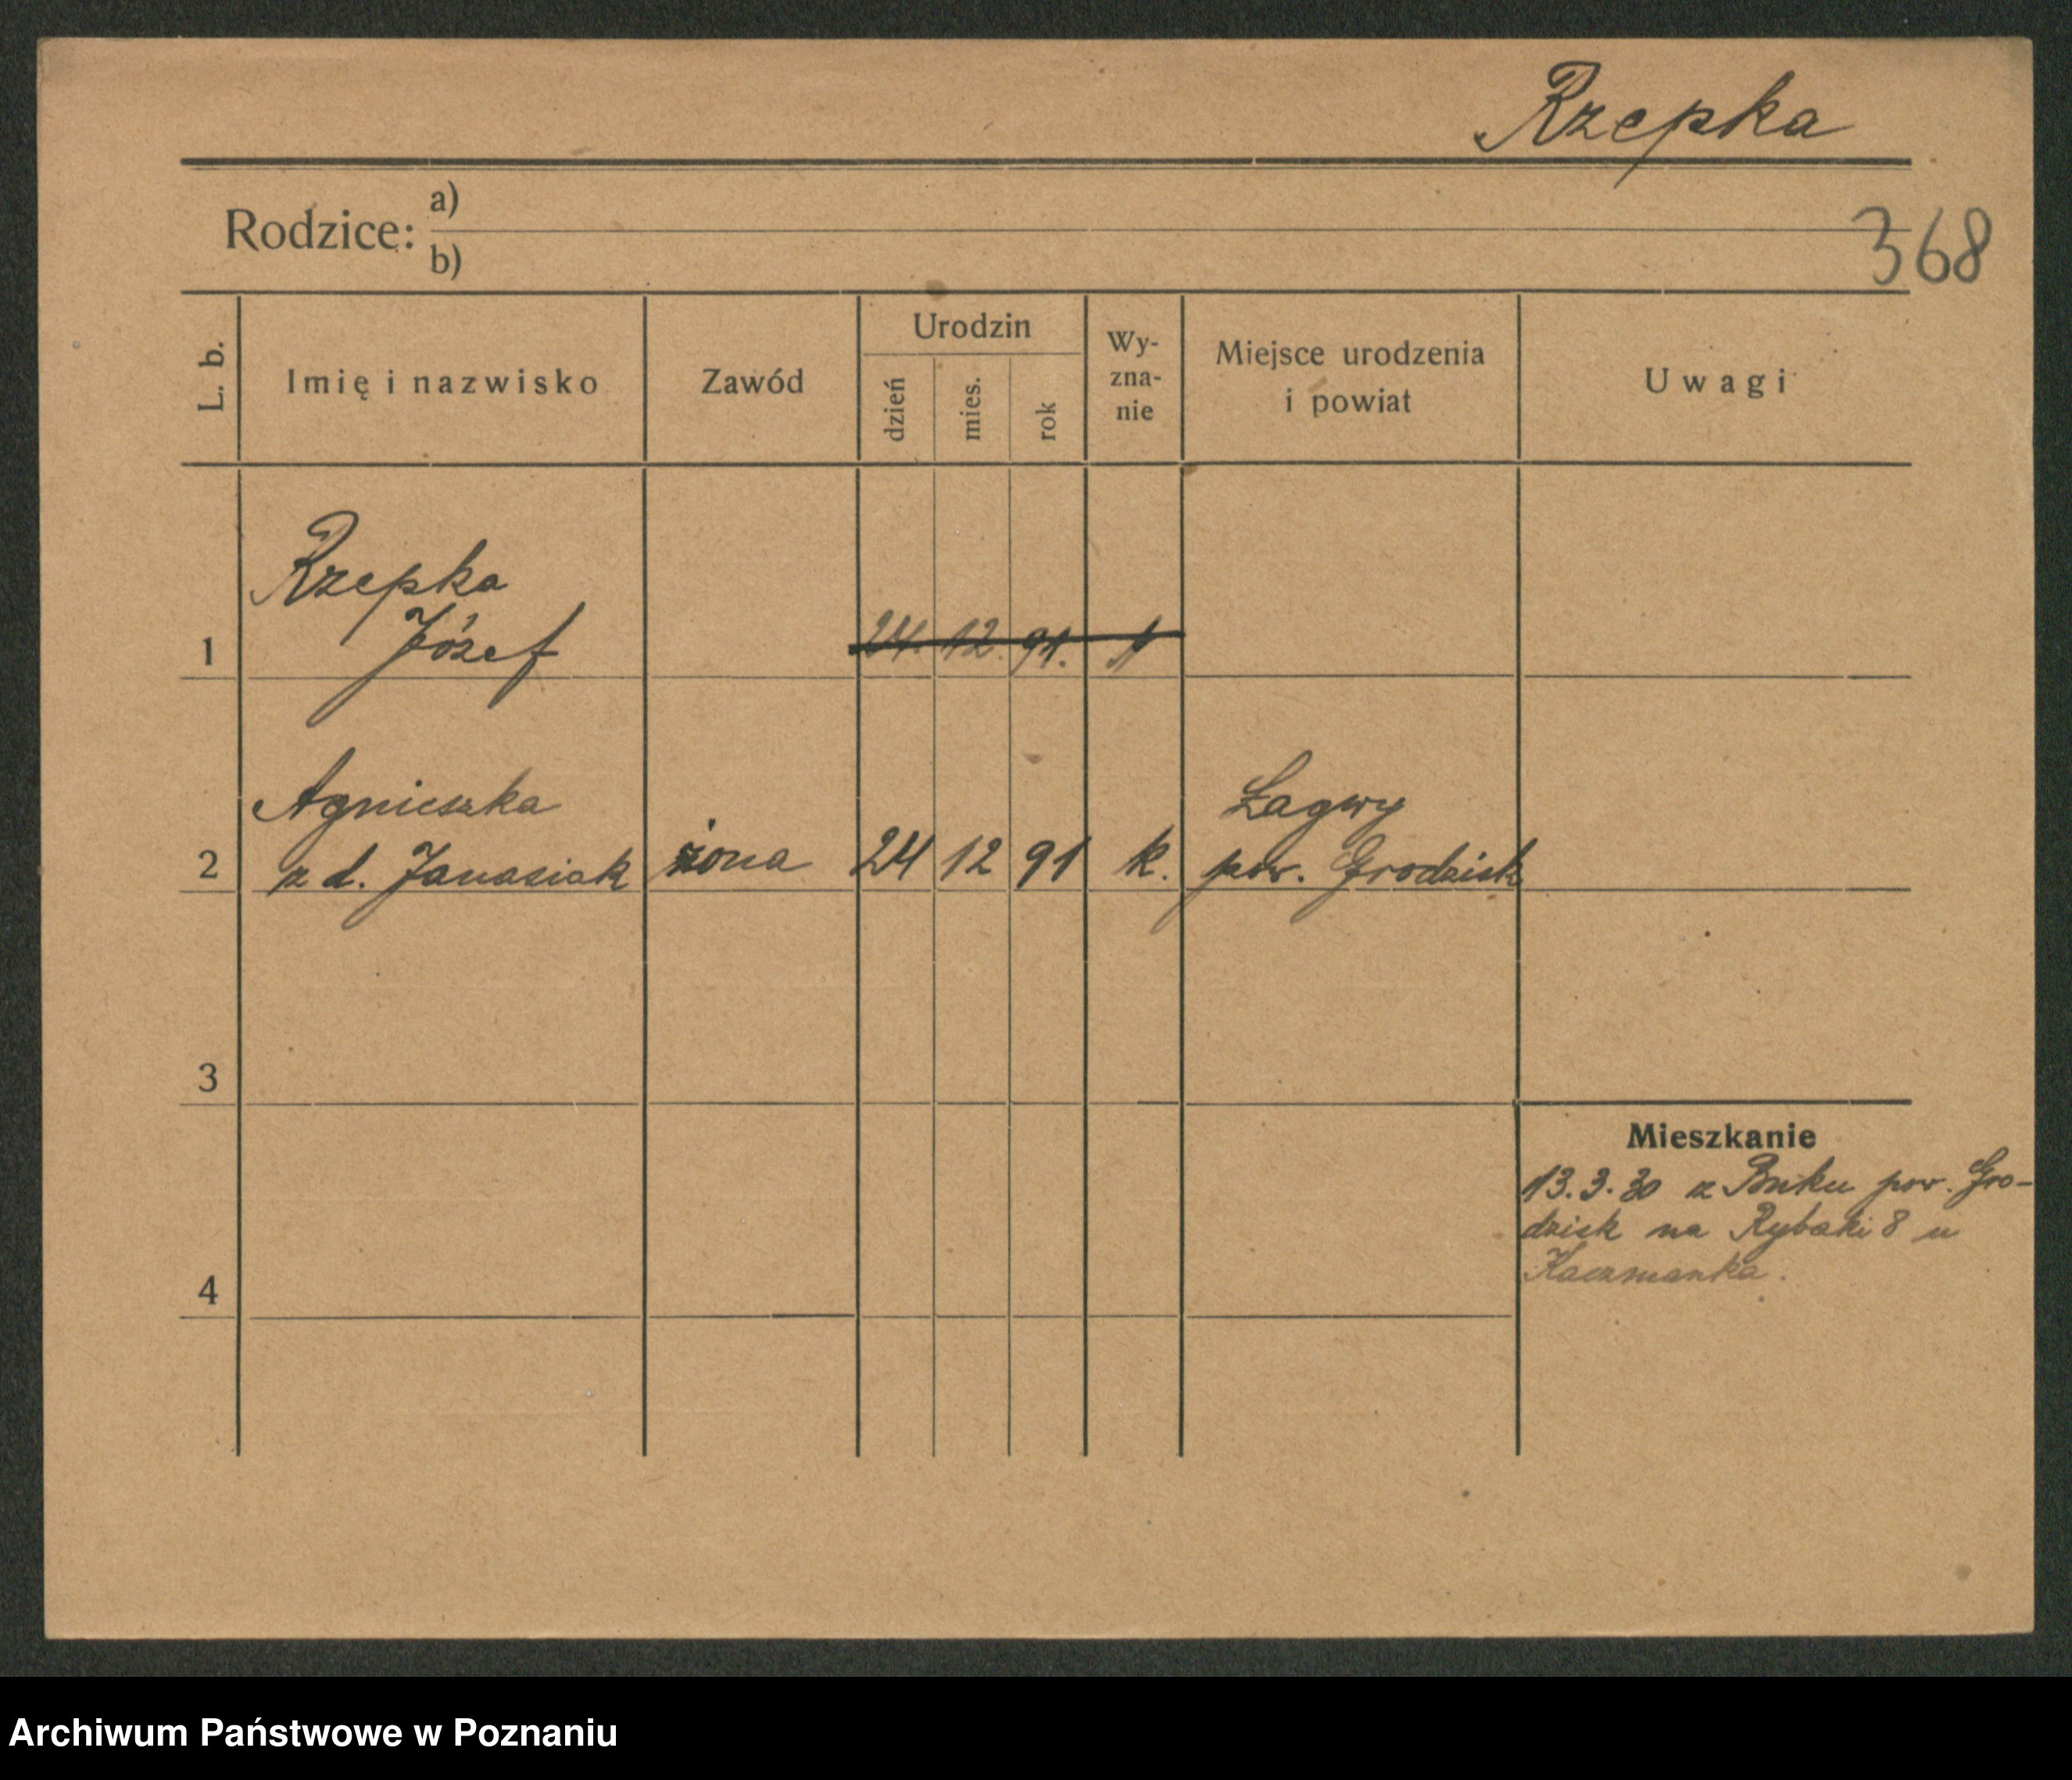 Rzepka
Rodzice: a)
b)
368
L. b.
Imię i nazwisko
Zawód
Urodzin
dzień
mies.
rok
Wy-
zna-
nie
Miejsce urodzenia
i powiat
Uwagi
Rzepka
1 Józef 24. 12. 91.
Agnieszka Łagwy
2 z d. Janasiak żona 24 12 91 k. pow. Grodzisk
3
Mieszkanie
13.3.30 z Buku pow. Gro-
dzisk na Rybaki 8 u
Kaczmarka.
4
Archiwum Państwowe w Poznaniu